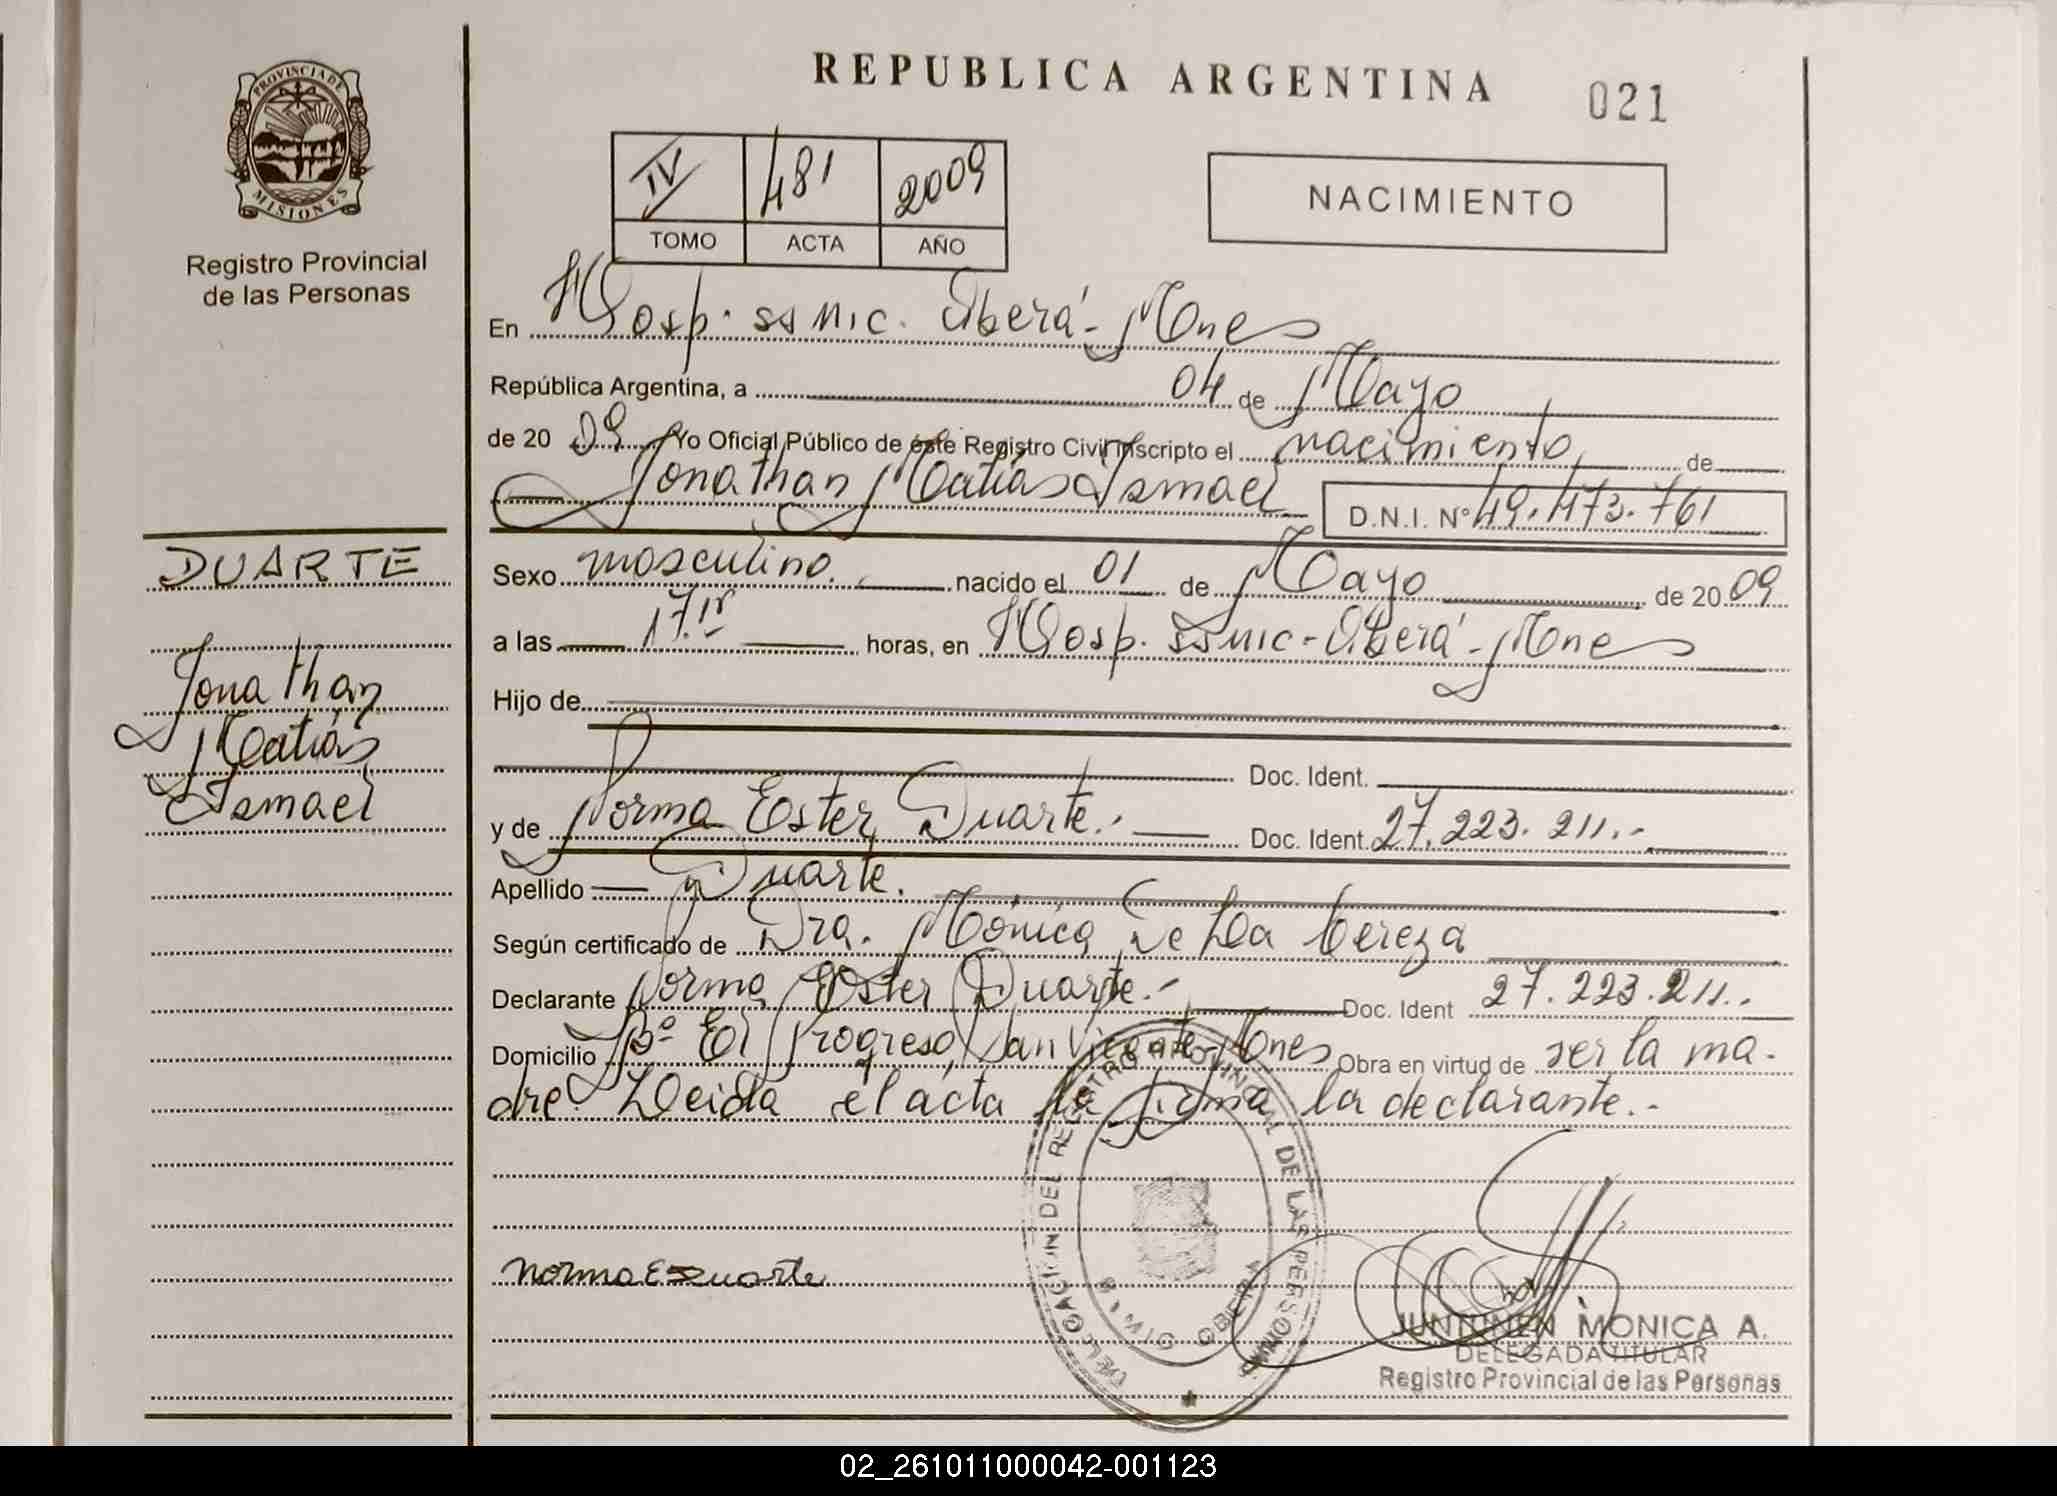 REPUBLICA ARGENTINA
021
PROVINCIA DE
MISIONES
Registro Provincial
de las Personas
IV 481 2009
TOMO ACTA AÑO
NACIMIENTO
En Hosp. ss mic. Oberá - Mnes
República Argentina, a 04 de Mayo
de 20 09 Yo Oficial Público de éste Registro Civil inscripto el nacimiento, de
Jonathan Matías Ismael D.N.I. Nº 49.473.761
DUARTE
Jonathan
Matías
Ismael
Sexo masculino. nacido el 01 de Mayo de 20 09
a las 17.15 horas, en Hosp. ss mic - Oberá - Mnes
Hijo de
Doc. Ident.
y de Norma Ester Duarte.- Doc. Ident. 27.223.211.-
Apellido Duarte.
Según certificado de Dra. Mónica De La Cereza
Declarante Norma Ester Duarte.- Doc. Ident 27.223.211.-
Domicilio Bº El Progreso, San Vicente - Mnes Obra en virtud de ser la ma-
dre. Leida el acta la firma la declarante.-
Norma E Duarte
DELEGACION DEL REGISTRO PROVINCIAL DE LAS PERSONAS
OBERA
JUNTUNEN MONICA A.
DELEGADA TITULAR
Registro Provincial de las Personas
02_261011000042-001123